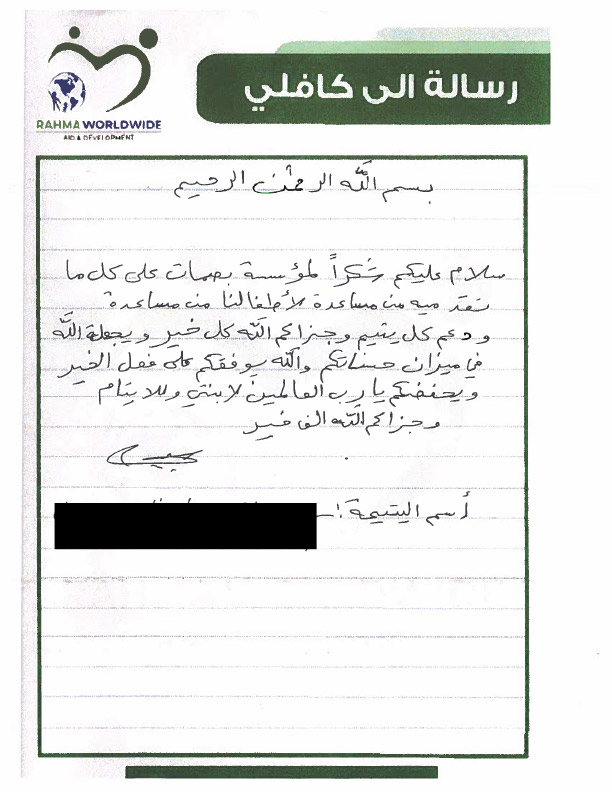 رسالة الى كافلي
RAHMA WORLDWIDE
AID & DEVELOPMENT
بسم الله الرحمن الرحيم
سلام عليكم شكراً لمؤسسة بصمات على كل ما
تقدميه من مساعدة لأطفالنا من مساعدة
ودعم كل يتيم وجزاكم الله كل خير ويجعلة الله
في ميزان حسناتكم والله يوفقكم على فعل الخير
ويحفضكم يا رب العالمين لابنتي وللايتام
وجزاكم الله الف خير
أسم اليتيمة :